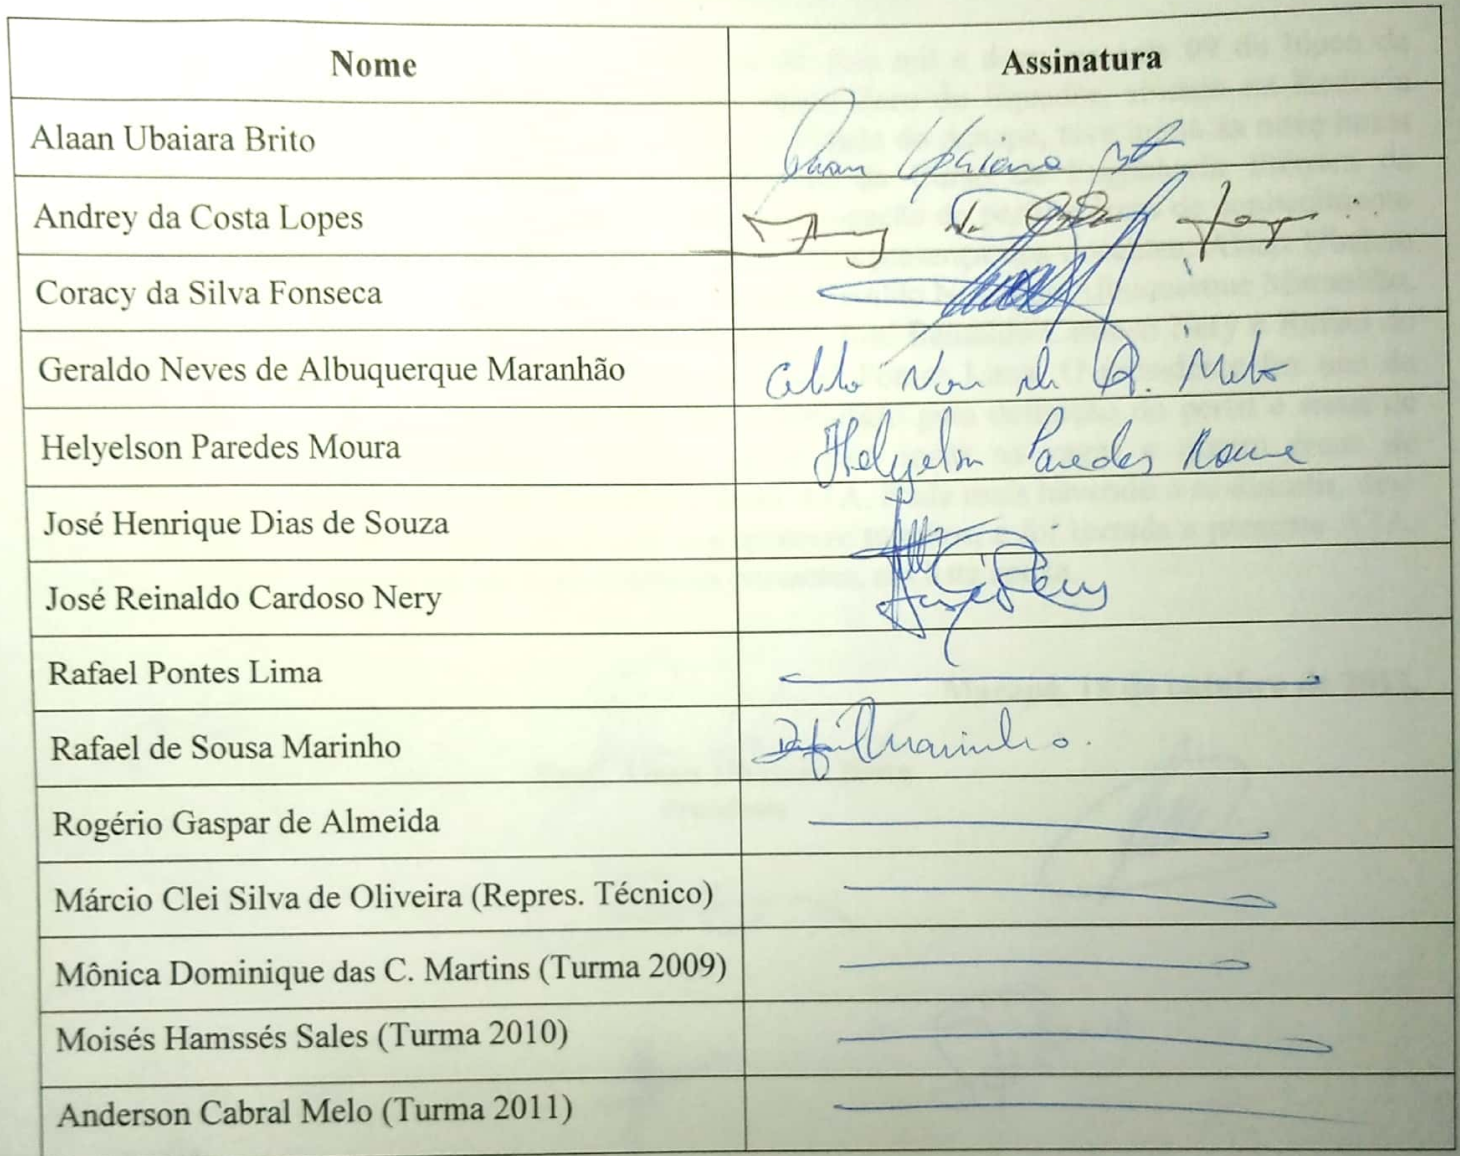 Nome Assinatura
Alaan Ubaiara Brito
Andrey da Costa Lopes
Coracy da Silva Fonseca
Geraldo Neves de Albuquerque Maranhão
Helyelson Paredes Moura Helyelson Paredes Moura
José Henrique Dias de Souza
José Reinaldo Cardoso Nery
Rafael Pontes Lima
Rafael de Sousa Marinho Rafael Marinho
Rogério Gaspar de Almeida
Márcio Clei Silva de Oliveira (Repres. Técnico)
Mônica Dominique das C. Martins (Turma 2009)
Moisés Hamssés Sales (Turma 2010)
Anderson Cabral Melo (Turma 2011)